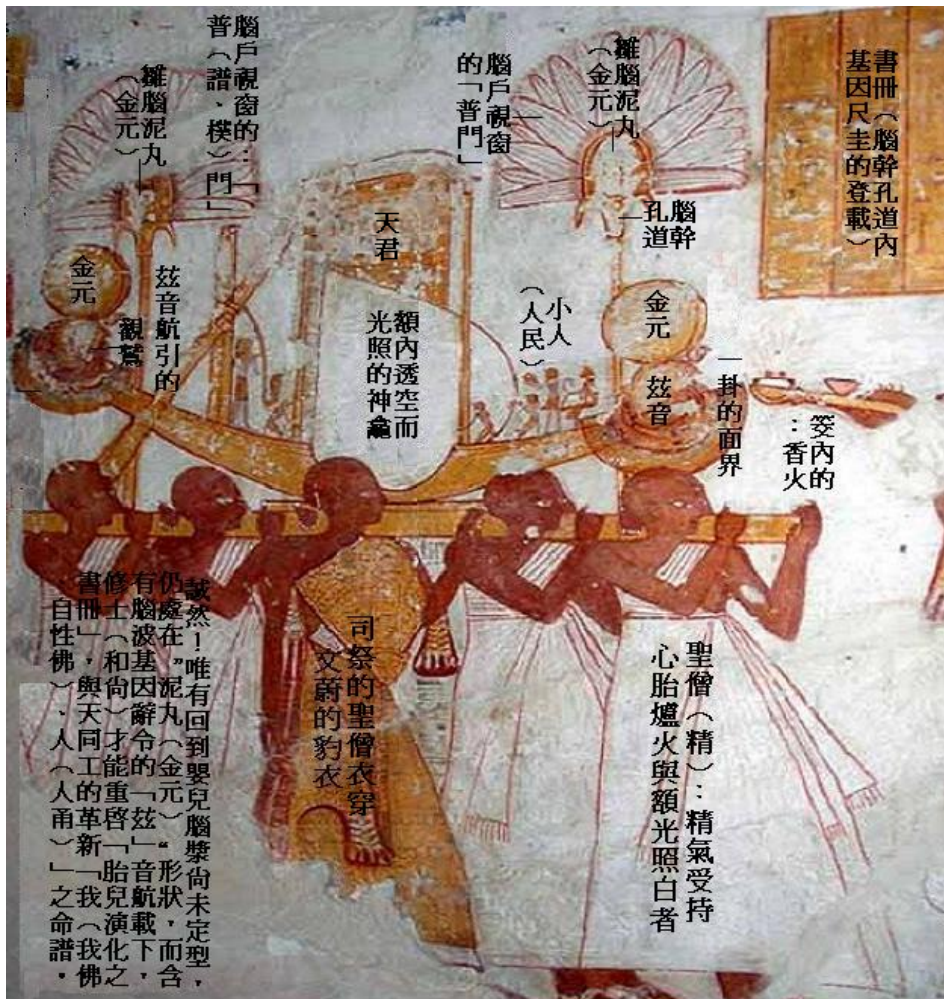 書冊（腦幹孔道內
基因尺圭的登載）
雛腦泥丸
（金元）
腦戶視窗
的「普門」
腦幹
孔道
腦戶視窗的：「
普（譜、樸）門」
雛腦泥丸
（金元）
天君
額內透空而
光照的神龕
小人
（人民）
金元
玆音
一卦的面界
筊內的
：香火
金元
玆音航引的
觀鷲
聖僧（精）：精氣受持
心胎爐火與額光照白者
司祭的聖僧衣穿
文蔚的豹衣
誠然！唯有回到嬰兒腦漿尚未定型，
仍處在〞泥丸（金元）〝形狀，而含
有腦波基因辭令的「玆」音航載下，
修士（和尚）才能重啓「胎兒演化之
書冊」，與天同工的革新「我（我佛
、自性佛）、人（人甬）」之命譜。